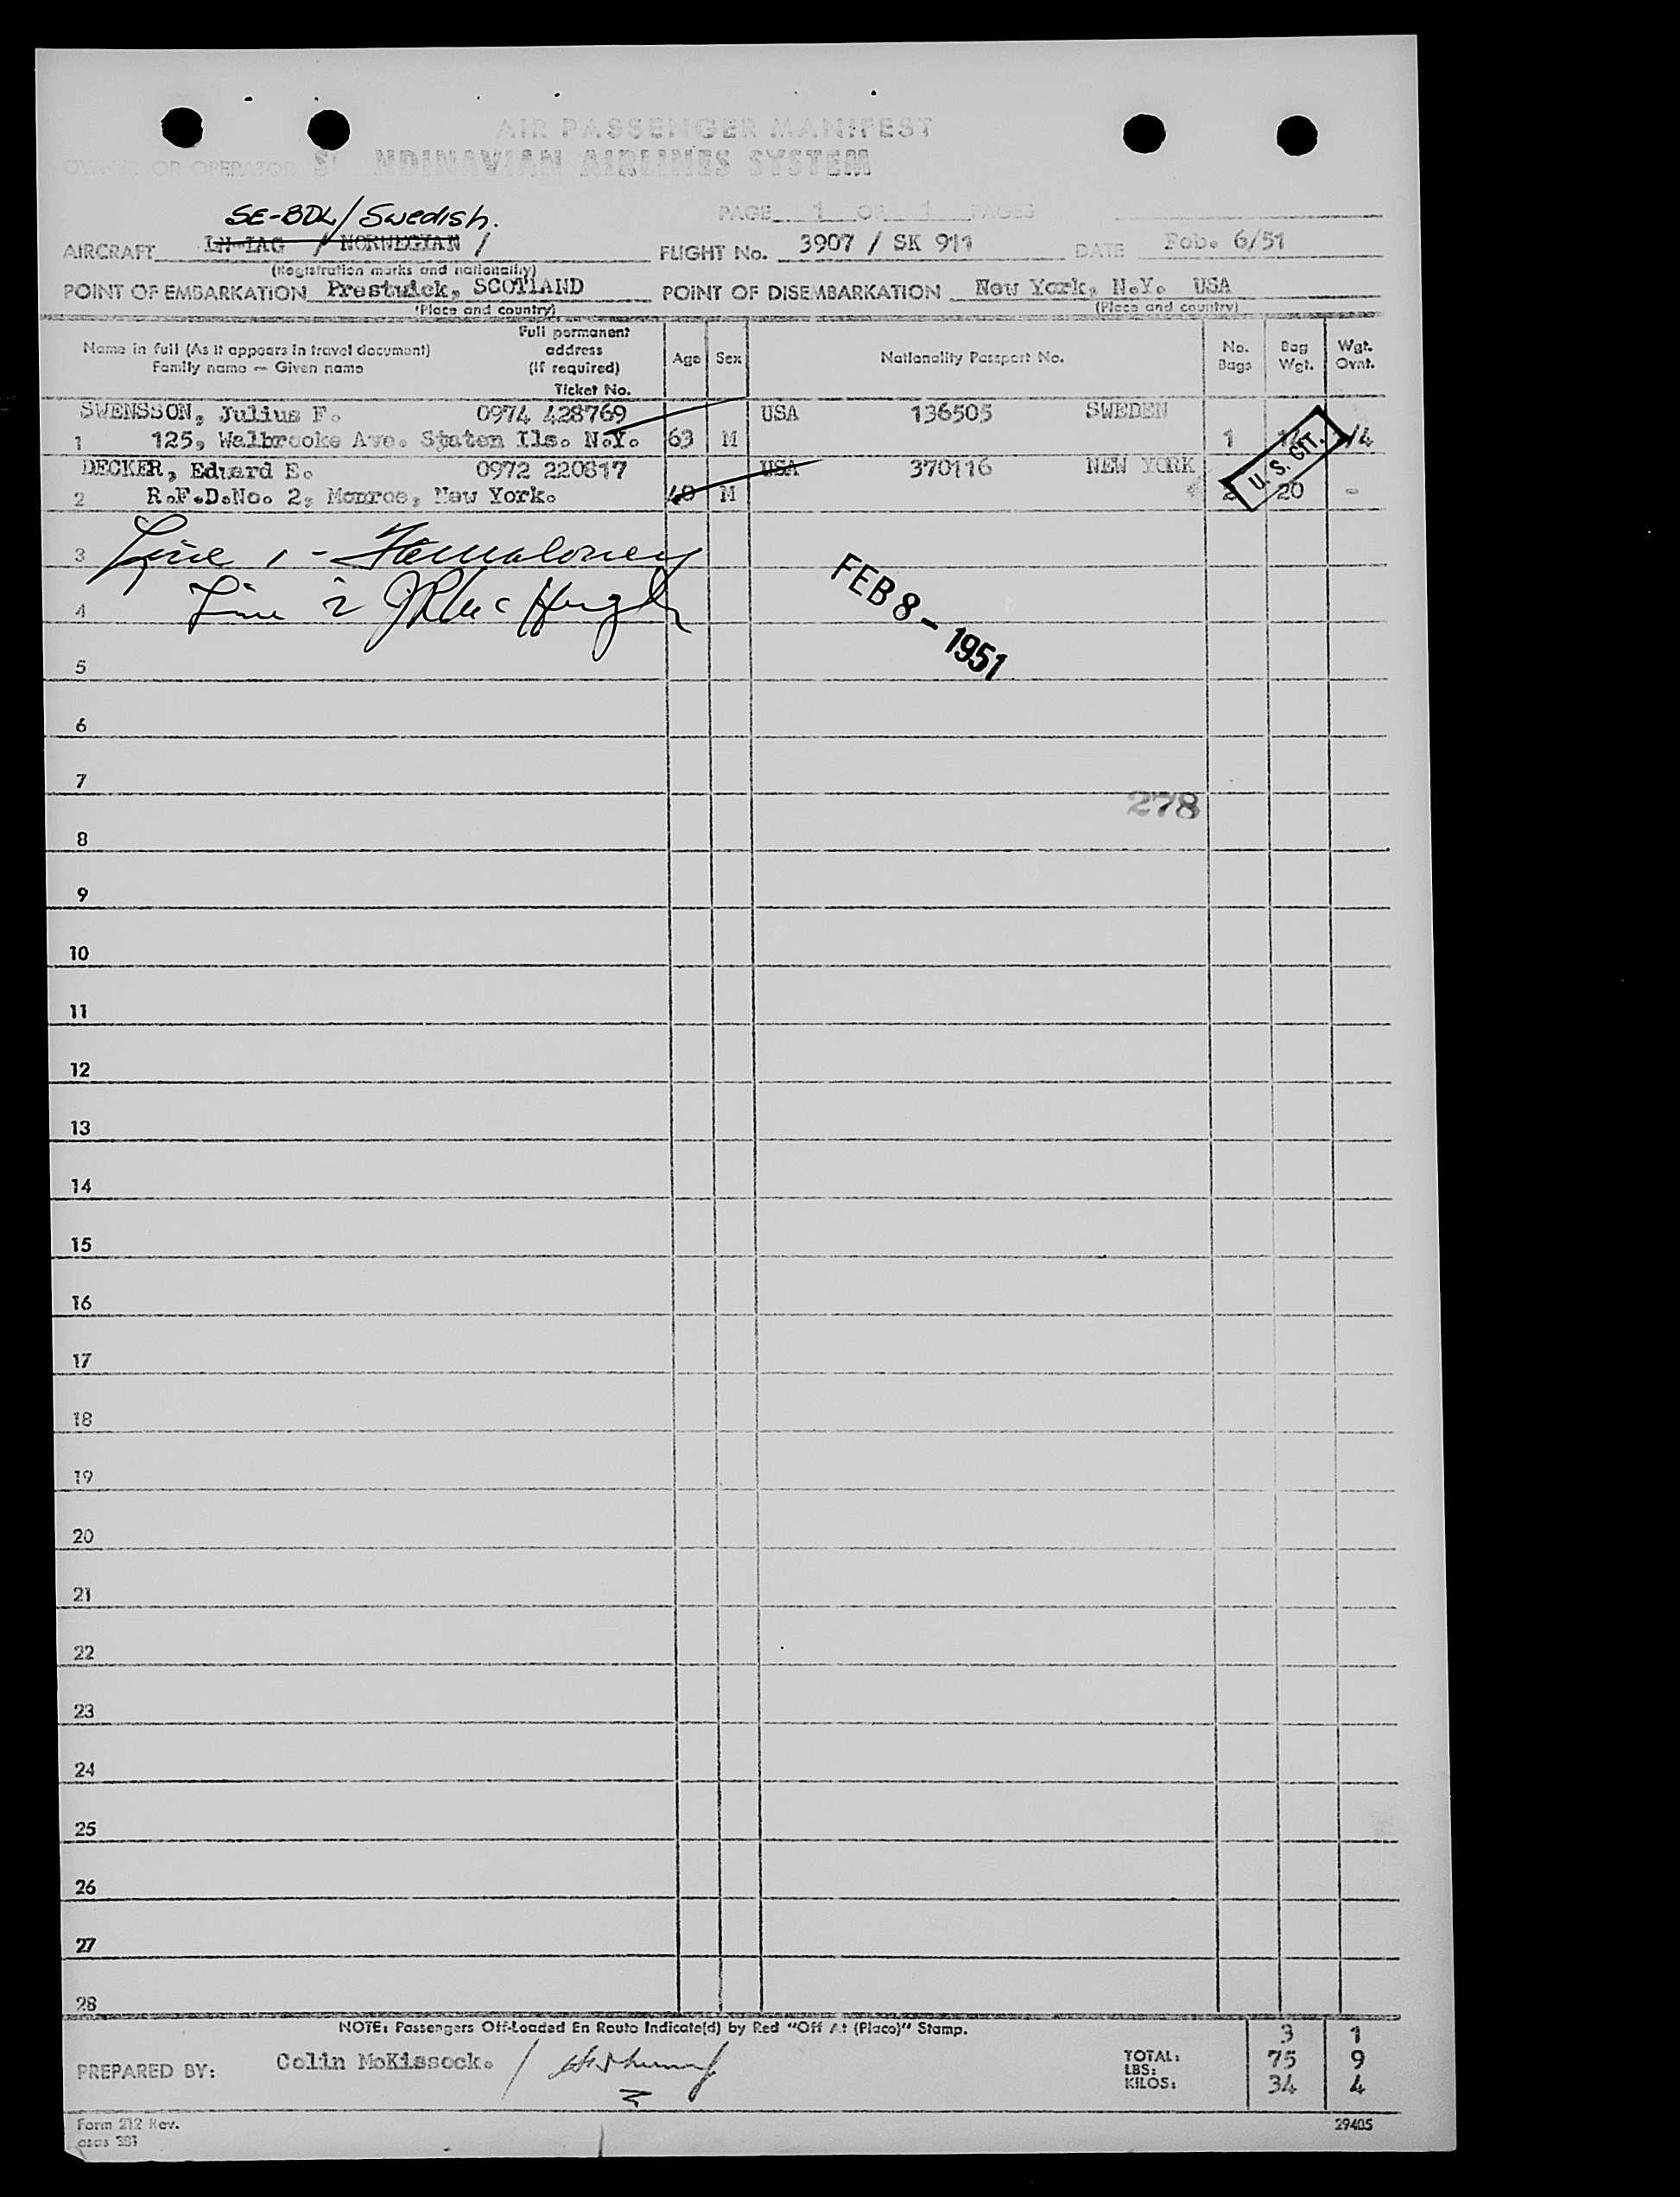 AIR PASSENGER MANIFEST
OWNER OR OPERATOR S NDINAVIAN AIRLINES SYSTEM
PAGE 1 OF 1 PAGES
SE-BDL/Swedish.
AIRCRAFT NORWEGIAN / FLIGHT No. 3907 / SK 911 DATE Feb. 6/51
(Registration marks and nationality)
POINT OF EMBARKATION Prestwick, SCOTLAND POINT OF DISEMBARKATION New York, N.Y. USA
(Place and country) (Place and country)
Name in full (As it appears in travel document) Family name — Given name
Full permanent address (If required) Ticket No.
Age Sex Nationality Passport No. No. Bags Bag Wgt. Wgt. Ovnt.
SWENSSON, Julius F. 0974 428769 USA 136505 SWEDEN
1 125, Walbrooke Ave. Staten Ils. N.Y. 63 M 1 /4
DECKER, Edward E. 0972 220817 USA 370116 NEW YORK
2 R.F.D.No. 2, Monroe, New York. 40 M 2 20 -
U.S. CIT.
3 Line 1 -
4 Line 2
FEB 8 - 1951
5
6
7
278
8
9
10
11
12
13
14
15
16
17
18
19
20
21
22
23
24
25
26
27
28
NOTE: Passengers Off-Loaded En Route Indicate(d) by Red "Off At (Place)" Stamp.
PREPARED BY: Colin McKissock. /
TOTAL: 3 1
LBS: 75 9
KILOS: 34 4
Form 212 Rev.
29405